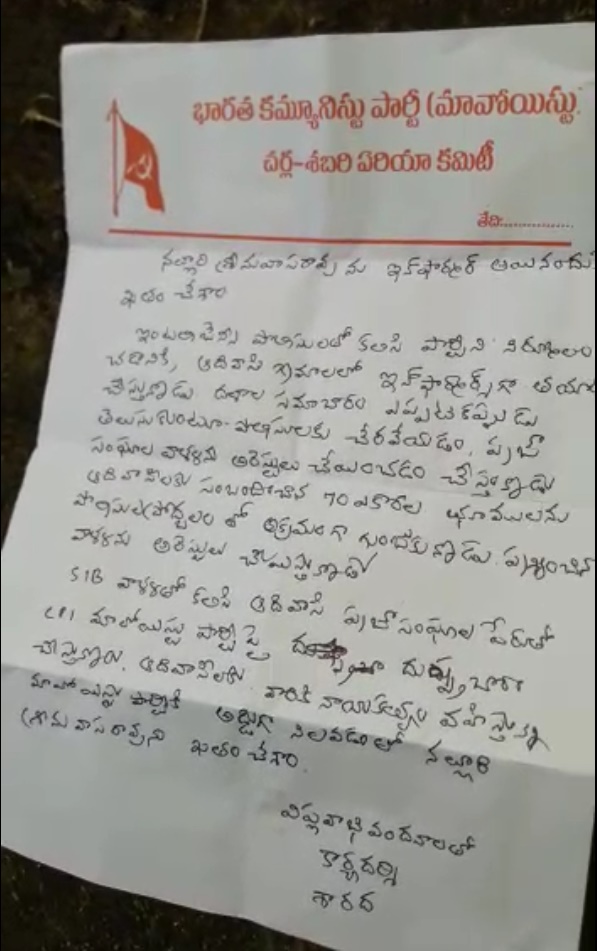 భారత కమ్యూనిస్టు పార్టీ (మావోయిస్టు
చర్ల-శబరి ఏరియా కమిటీ
తేది:..................
నల్లూరి శ్రీనివాసరావు ను ఇన్‌ఫార్మర్ అయినందు
ఖతం చేశాం
పోలీసులతో కలిసి పార్టీని నిర్మూలం
ఆదివాసి గ్రామాలలో ఇన్‌ఫార్మర్స్‌గా తయా
చేస్తున్నాడు దళాల సమాచారం ఎప్పటికప్పుడు
తెలుసుకుంటూ పోలిసులకు చేరవేయడం, ప్రజా
సంఘాల వాళ్ళను అరెస్టులు చేయించడం చేస్తున్నాడు
ఆదివాసీలకు సంబందించిన 70 ఎకరాల భూములను
పోలిసుల ప్రోద్బలం తో అక్రమంగా గుంజుకున్నాడు. ప్రశ్నించిన
వాళ్ళను అరెస్టులు
SIB వాళ్ళతో కలిసి ఆదివాసీ ప్రజాసంఘాల పేరుతో
CPI మావోయిస్టు పార్టీ పై దుష్ప్రచారం
చేస్తున్నాడు. ఆదివాసీలకు నాయకత్వం వహిస్తున్న
మావోయిస్టు పార్టీకి అడ్డుగా నిలవడంతో నల్లూరి
శ్రీనివాసరావుని ఖతం చేశాం.
విప్లవాభివందనాలతో
కార్యదర్శి
శారద